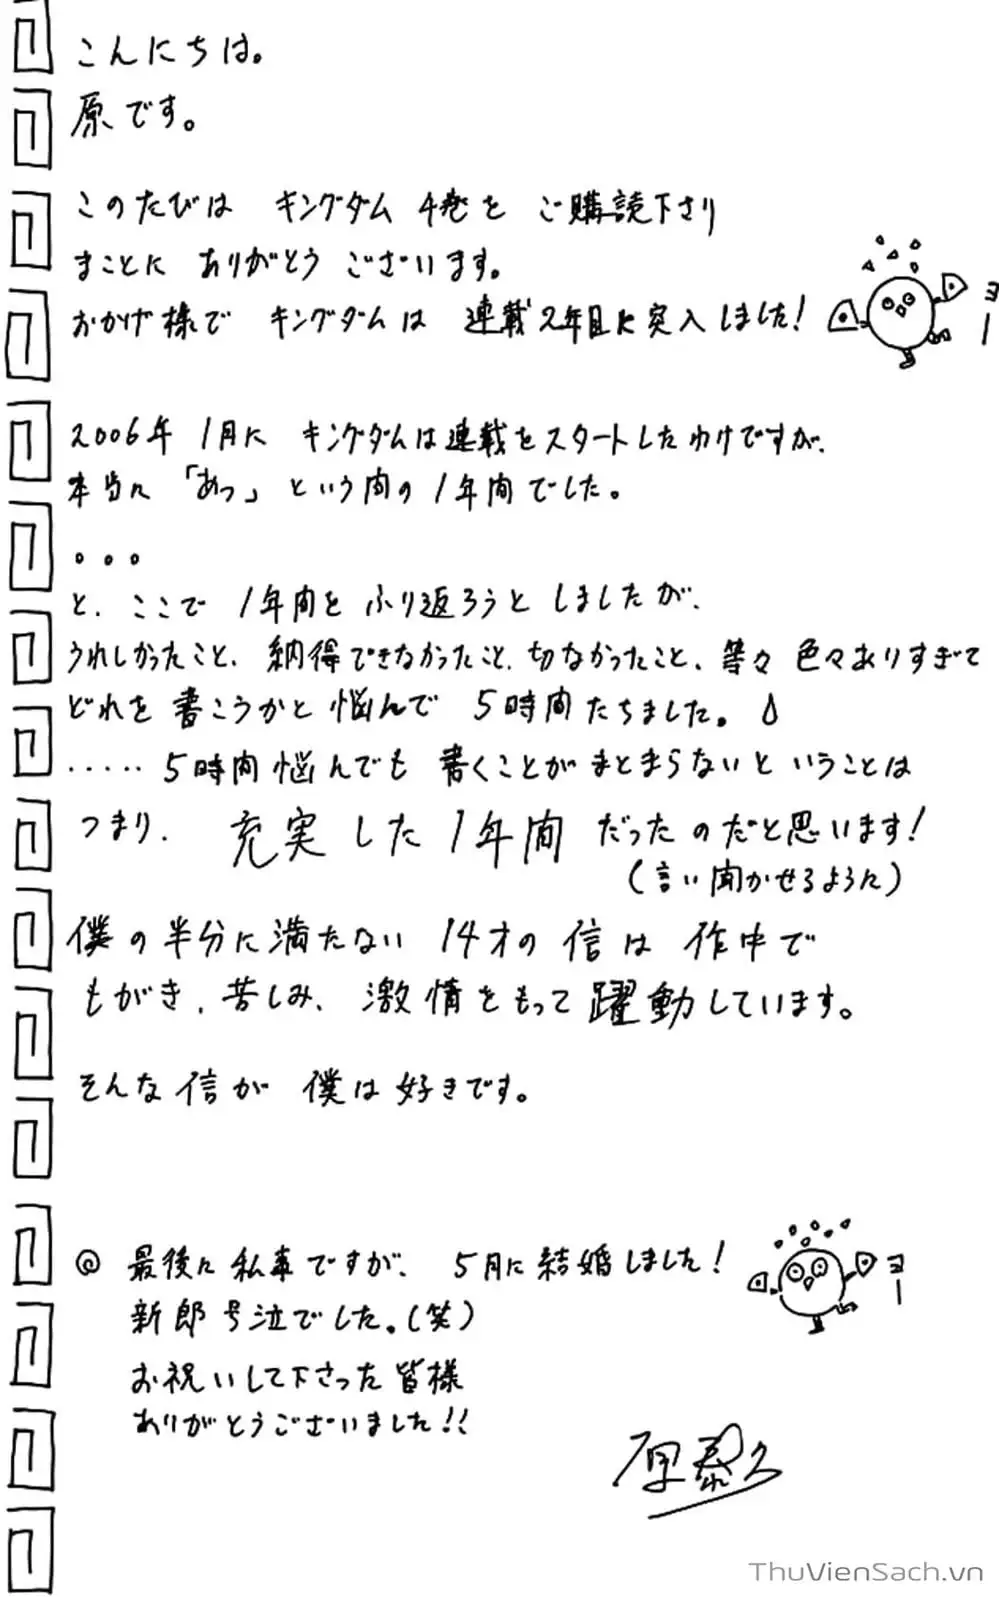 こんにちは。
原です。
このたびは キングダム 4巻を ご購読下さり
まことに ありがとう ございます。
おかげ様で キングダムは 連載2年目に突入しました!
ヨー
2006年 1月に キングダムは連載をスタートしたわけですが、
本当に 「あっ」 という間の 1年間でした。
。。。
と、ここで 1年間を ふり返ろうと しましたが、
うれしかったこと、納得できなかったこと、切なかったこと、等々 色々ありすぎて
どれを 書こうかと 悩んで 5時間たちました。
・・・・・5時間悩んでも 書くことが まとまらないと いうことは
つまり、 充実した1年間 だったのだと思います!
(言い聞かせるように)
僕の半分に満たない 14才の 信は 作中で
もがき、苦しみ、 激情をもって躍動しています。
そんな信が 僕は好きです。
◎ 最後に 私事ですが、 5月に結婚しました!
ヨー
新郎号泣でした。(笑)
お祝いして下さった皆様
ありがとうございました!!
原泰久
ThuVienSach.vn